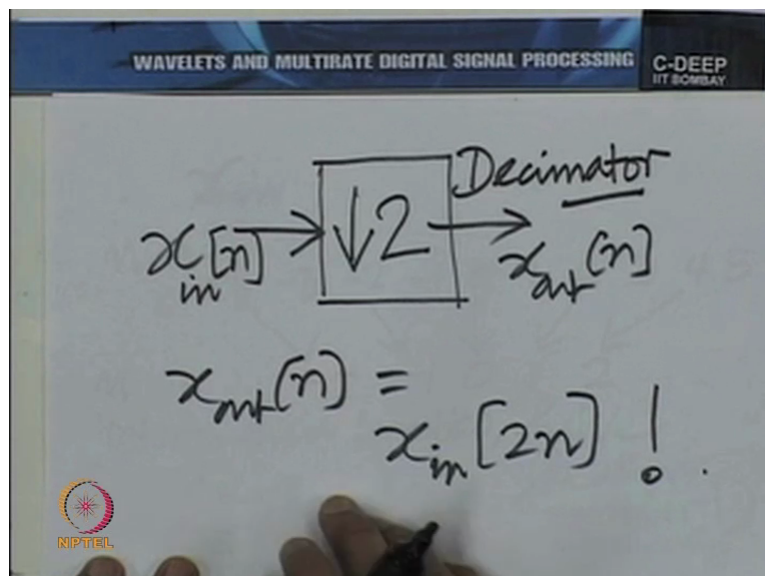 WAVELETS AND MULTIRATE DIGITAL SIGNAL PROCESSING
C-DEEP
IIT BOMBAY
Decimator
x_in[n] → ↓2 → x_out[n]
x_out[n] =
x_in[2n] !
NPTEL